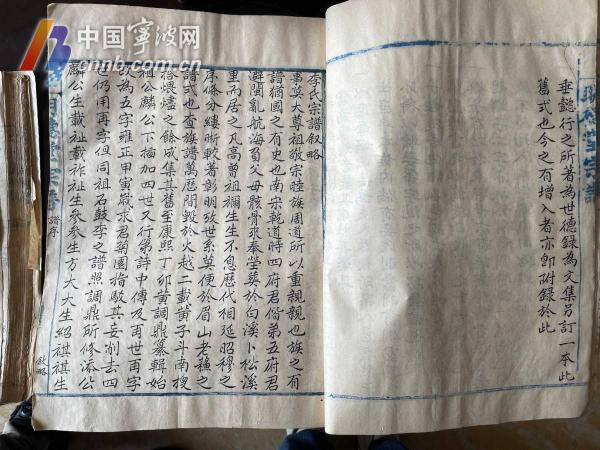 中国宁波网
cnnb.com.cn
垂懿行之所著為世德録為文集另訂一本此
舊式也今之有增入者亦即附錄於此
李氏宗譜叙略
萬莫大尊祖敬宗睦族周道所以重親親也族之有
譜猶國之有史也南宋乾道時四府君偕第五府君
避閩亂航海負父母骸骨來奉塋葬於白溪卜松溪
里而居之凡高曾祖禰生生不息歷代相延昭穆之
序條分縷晰較著彰明攷世系莫便於眉山老穐之
譜式也查族譜萬歷間毀於火越二載黄子斗南搜
拾煨燼之餘成集其舊至康熙丁卯黄調鼎纂輯始
祖公麟公下抽加四世又行第詩中傳及甫世再字
改為五字雍正甲寅歲求君蒴園指駁其妄削去四
世仍用再字但同祖石鼓李之譜照調鼎所修添公
麟公生載祉載祚祉生參參生方大大生紹祺祺生
宗譜
譜序
叙略
堂宗譜